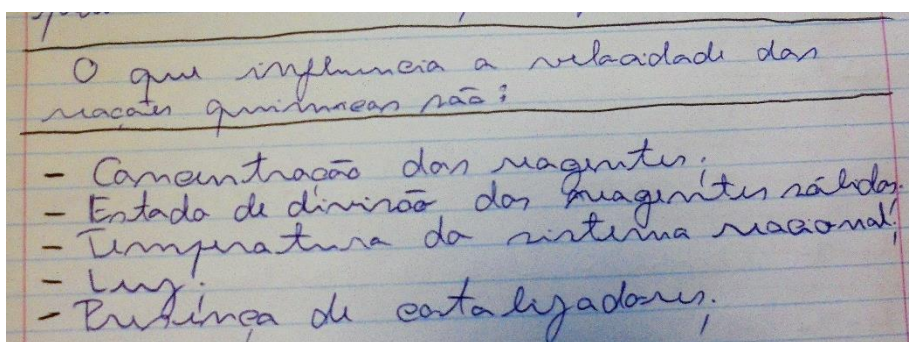 O que influencia a velocidade das
reações quimicas são:
- Concentração dos reagentes.
- Estado de divisão dos reagentes sólidos.
- Temperatura do sistema reacional.
- Luz.
- Presença de catalizadores.